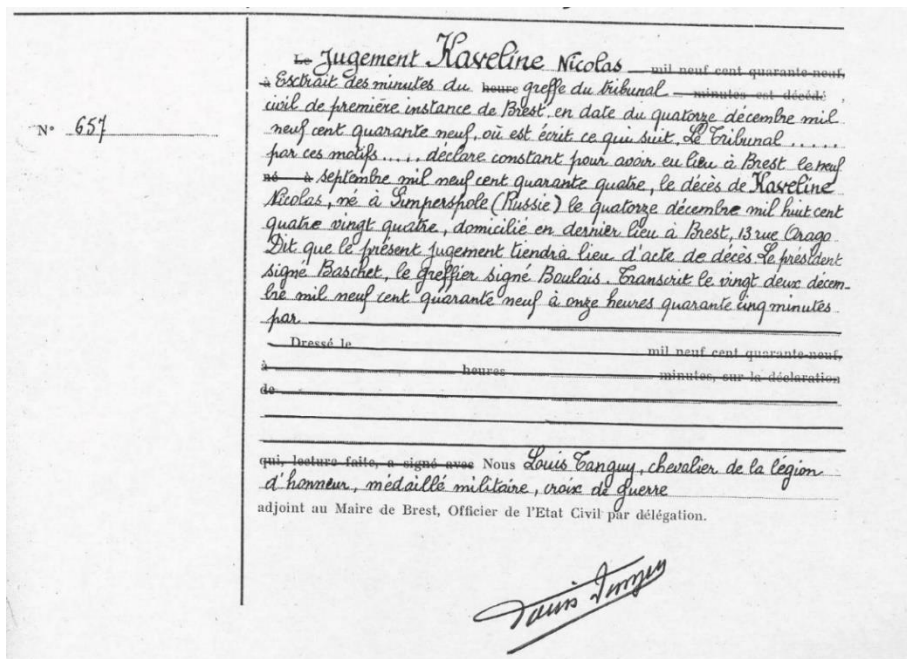 Le Jugement Kaveline Nicolas mil neuf cent quarante-neuf,
à Extrait des minutes du heure greffe du tribunal minutes est décédé,
civil de première instance de Brest, en date du quatorze décembre mil
N° 657
neuf cent quarante neuf, où est écrit ce qui suit, Le Tribunal ......
par ces motifs ..... déclare constant pour avoir eu lieu à Brest le neuf
né à septembre mil neuf cent quarante quatre, le décès de Kaveline
Nicolas, né à Simperspole (Russie) le quatorze décembre mil huit cent
quatre vingt quatre, domicilié en dernier lieu à Brest, 13 rue Arago
Dit que le présent jugement tiendra lieu d'acte de décès Le président
signé Baschet, le greffier signé Boulais. Transcrit le vingt deux décem-
bre mil neuf cent quarante neuf à onze heures quarante cinq minutes
par
Dressé le mil neuf cent quarante-neuf,
à heures minutes, sur la déclaration
de
qui, lecture faite, a signé avec Nous Louis Tanguy, chevalier de la légion
d'honneur, médaillé militaire, croix de guerre
adjoint au Maire de Brest, Officier de l'Etat Civil par délégation.
Louis Tanguy